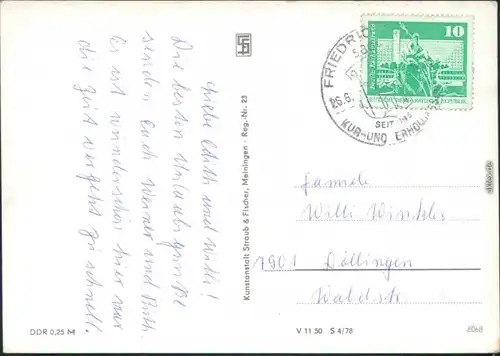 Liebe Edith und Willi!
Die besten Urlaubsgrüße
senden euch Werner und Ruth.
Es ist wunderschön hier nur
die Zeit vergeht zu schnell.
DDR 0,25 M
Kunstanstalt Straub & Fischer, Meiningen · Reg.-Nr. 23
V 11 50 S 4/78
10
Berlin, Neptunbrunnen
DEUTSCHE DEMOKRATISCHE REPUBLIK
FRIEDRICH
26.6.
SEIT
KUR-UND ERHOLUNGS
Familie
Willi Winkler
7901 Döllingen
Waldstr.